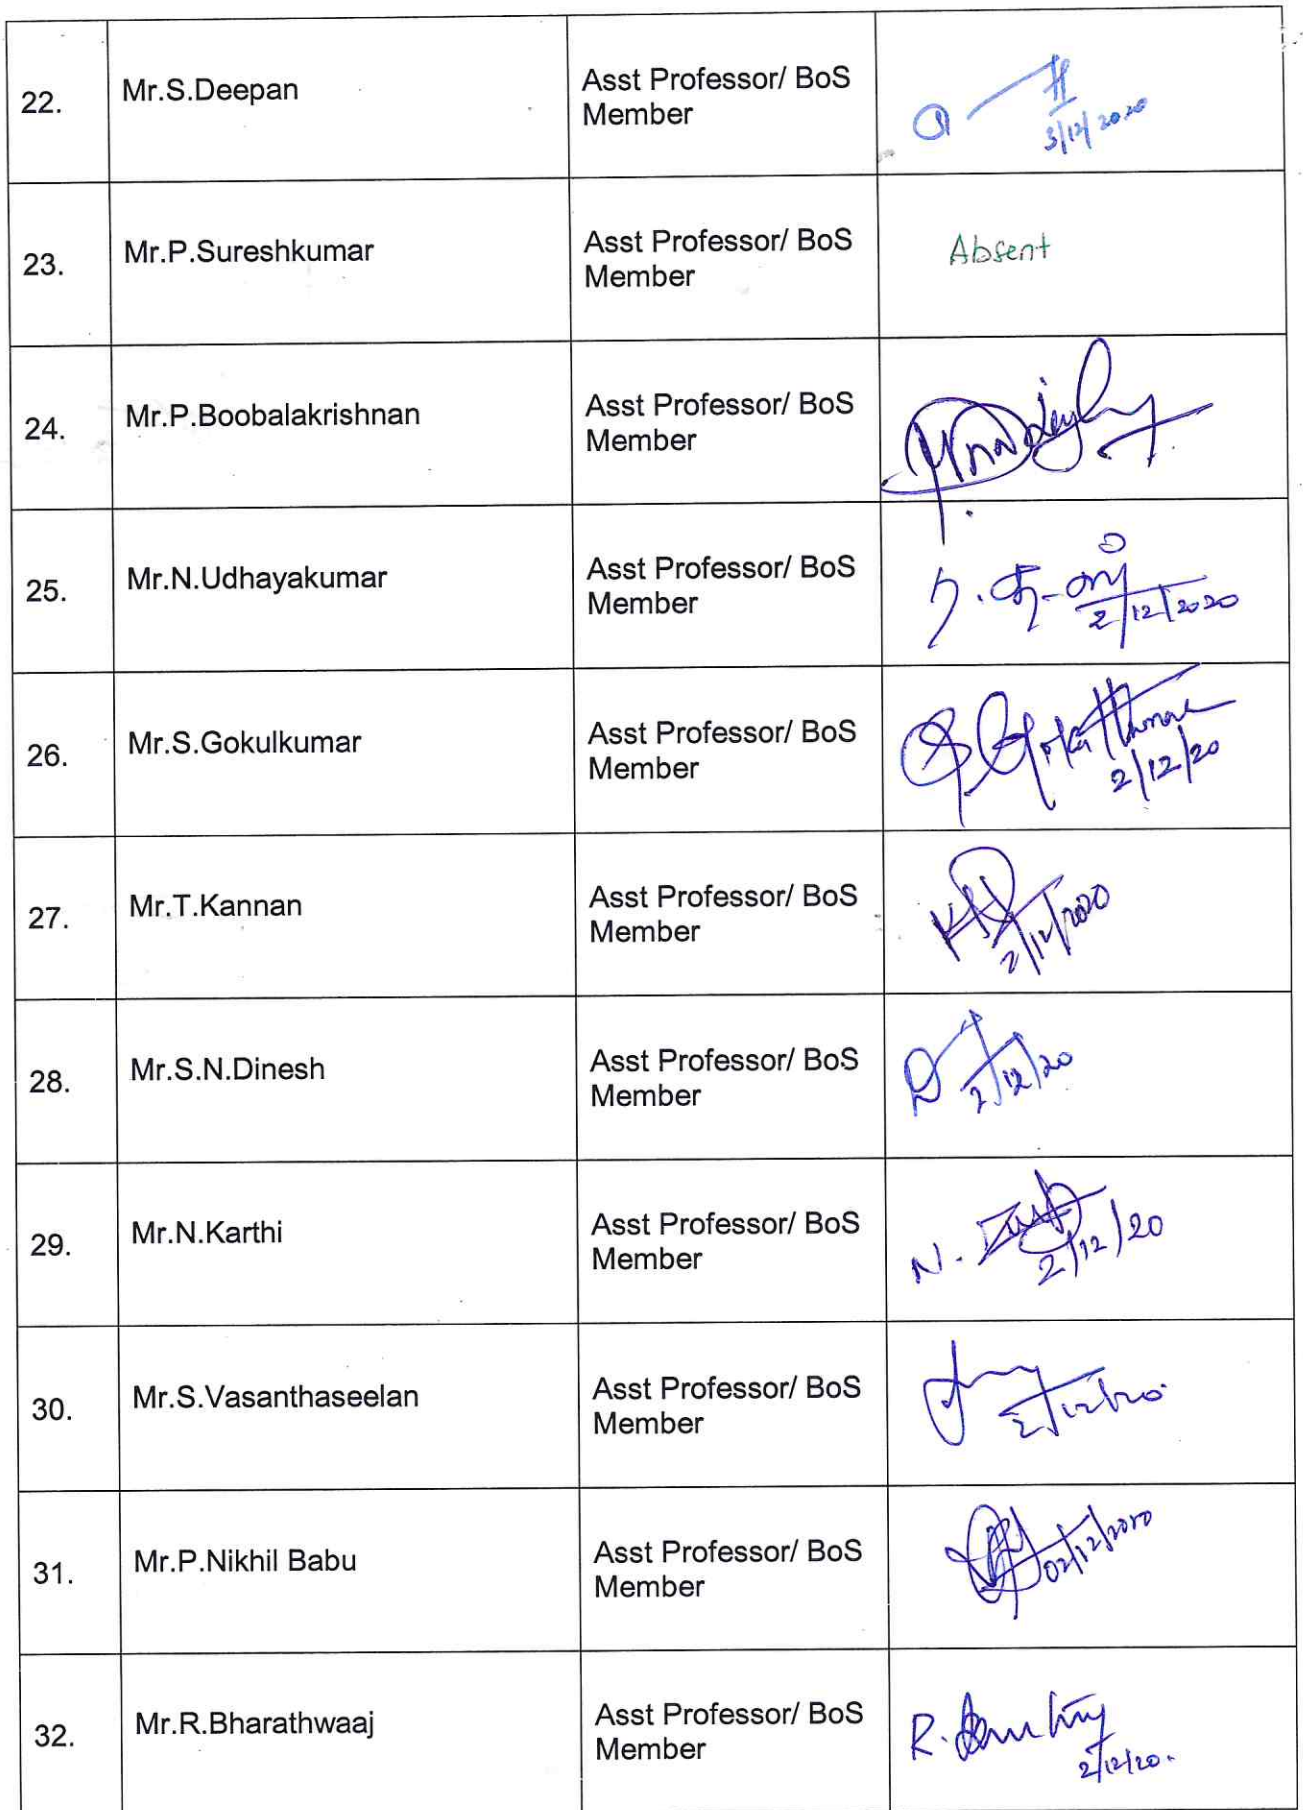 22.
Mr.S.Deepan
Asst Professor/ BoS
Member
3/12/2020
23.
Mr.P.Sureshkumar
Asst Professor/ BoS
Member
Absent
24.
Mr.P.Boobalakrishnan
Asst Professor/ BoS
Member
25.
Mr.N.Udhayakumar
Asst Professor/ BoS
Member
2/12/2020
26.
Mr.S.Gokulkumar
Asst Professor/ BoS
Member
2/12/20
27.
Mr.T.Kannan
Asst Professor/ BoS
Member
2/12/2020
28.
Mr.S.N.Dinesh
Asst Professor/ BoS
Member
2/12/20
29.
Mr.N.Karthi
Asst Professor/ BoS
Member
N.
2/12/20
30.
Mr.S.Vasanthaseelan
Asst Professor/ BoS
Member
2/12/20
31.
Mr.P.Nikhil Babu
Asst Professor/ BoS
Member
02/12/2020
32.
Mr.R.Bharathwaaj
Asst Professor/ BoS
Member
R.
2/12/20.